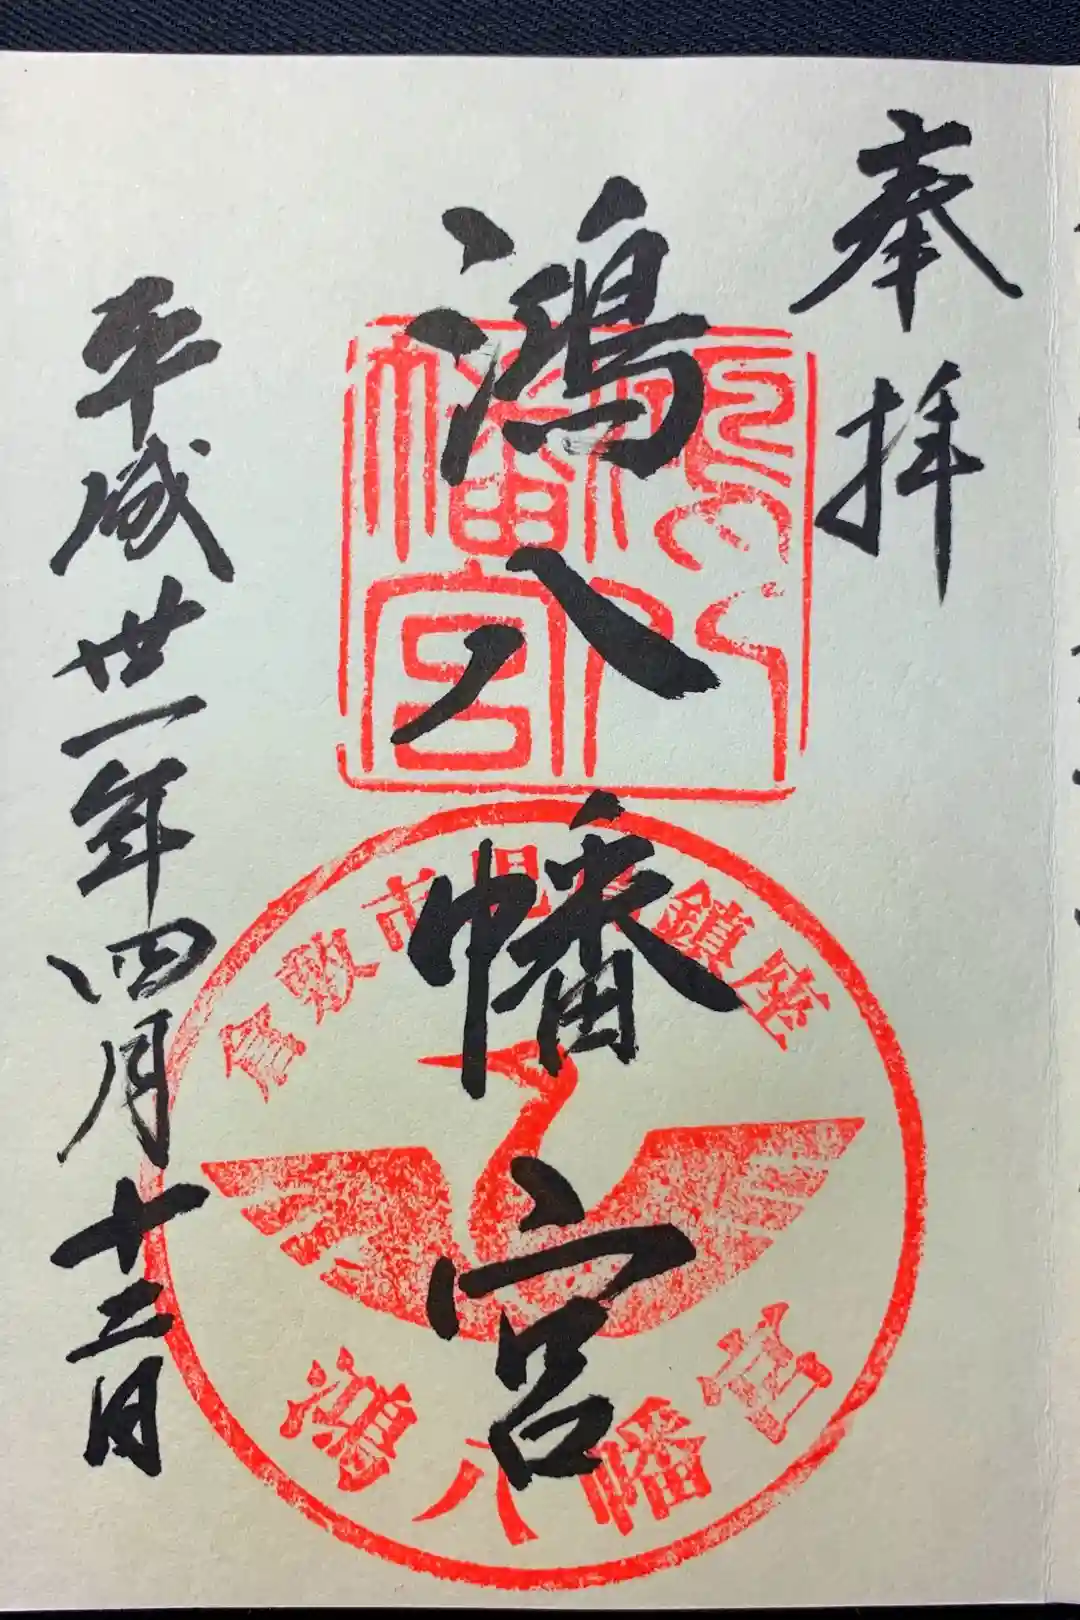 奉拝
鴻八幡宮
平成丗一年四月十三日
鴻八幡宮
倉敷市児島鎮座
鴻八幡宮